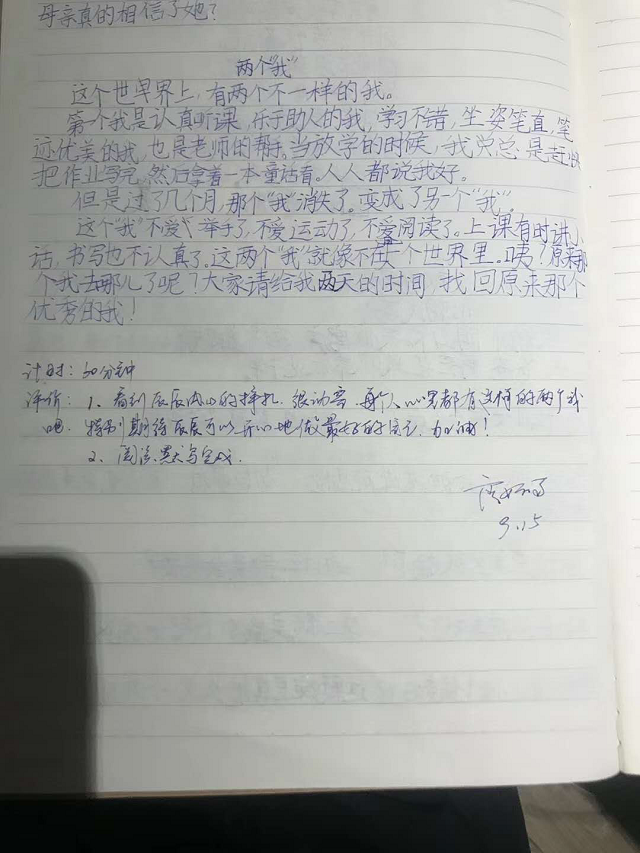 母亲真的相信了她？
两个"我"
这个世界上，有两个不一样的我。
第一个我是认真听课，乐于助人的我，学习不错，坐姿笔直，笔
迹优美的我，也是老师的帮手。当放学的时候，我总是赶快
把作业写完，然后拿着一本童话看。人人都说我好。
但是过了几个月，那个"我"消失了。变成了另一个"我"。
这个"我"不爱举手了，不爱运动了，不爱阅读了。上课有时讲小
话，书写也不认真了。这两个"我"就象不在一个世界里。咦？原来那
个我去哪儿了呢？大家请给我两天的时间，找回原来那个
优秀的我！
计时：30分钟
评价：1、看到辰辰内心的挣扎，很动容，每个人心里都有这样的两个我
吧。特别期待辰辰可以开心地做最好的自己，加油！
2、阅读，默写完成。
9.15